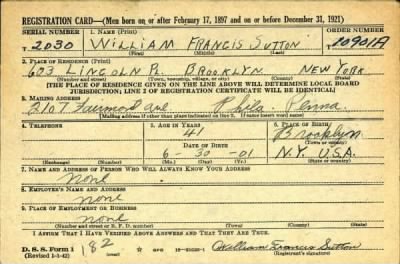 REGISTRATION CARD—(Men born on or after February 17, 1897 and on or before December 31, 1921)
SERIAL NUMBER 1. NAME (Print) ORDER NUMBER
T 2030 WILLIAM FRANCIS SUTTON 10901A
(First) (Middle) (Last)
2. PLACE OF RESIDENCE (Print)
603 LINCOLN PL. BROOKLYN NEW YORK
(Number and street) (Town, township, village, or city) (County) (State)
[THE PLACE OF RESIDENCE GIVEN ON THE LINE ABOVE WILL DETERMINE LOCAL BOARD
JURISDICTION; LINE 2 OF REGISTRATION CERTIFICATE WILL BE IDENTICAL]
3. MAILING ADDRESS
2107 Fairmont Ave. Phila. Penna
[Mailing address if other than place indicated on line 2. If same insert word same]
4. TELEPHONE 5. AGE IN YEARS 6. PLACE OF BIRTH
41 Brooklyn
DATE OF BIRTH (Town or county)
6-30-01 N.Y. U.S.A.
(Exchange) (Number) (Mo.) (Day) (Yr.) (State or country)
7. NAME AND ADDRESS OF PERSON WHO WILL ALWAYS KNOW YOUR ADDRESS
none
8. EMPLOYER'S NAME AND ADDRESS
none
9. PLACE OF EMPLOYMENT OR BUSINESS
none
(Number and street or R. F. D. number) (Town) (County) (State)
I AFFIRM THAT I HAVE VERIFIED ABOVE ANSWERS AND THAT THEY ARE TRUE.
D. S. S. Form 1
(Revised 1-1-42) 182 William Francis Sutton
(Registrant's signature)